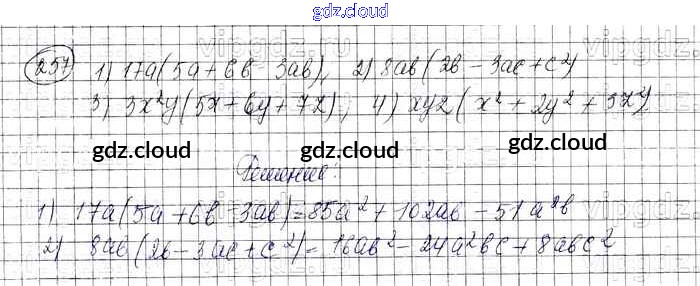 gdz.cloud
257 1) 17a(5a + 6b - 3ab), 2) 8ab(2b - 3ac + c²)
3) 3x²y(5x + 6y + 7z); 4) xyz(x² + 2y² + 3z²)
gdz.cloud gdz.cloud gdz.cloud
Решение:
1) 17a(5a + 6b - 3ab) = 85a² + 102ab - 51a²b
2) 8ab(2b - 3ac + c²) = 16ab² - 24a²bc + 8abc²